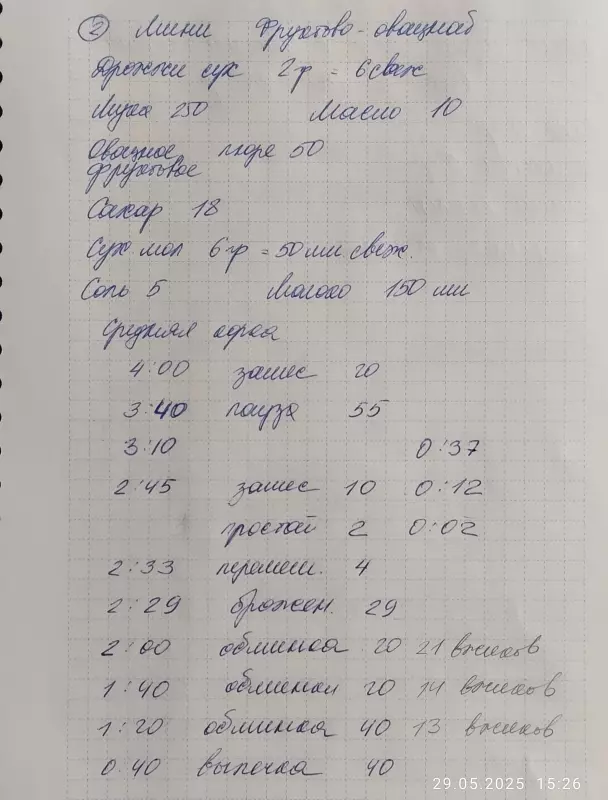 ② Мини Фруктово-овощной
Дрожжи сух 2 гр = 6 свеж
Мука 250 Масло 10
Овощное пюре 50
фруктовое
Сахар 18
Сух мол 6 гр = 50 мл свеж.
Соль 5 Молоко 150 мл
Средняя корка
4:00 замес 20
3:40 пауза 55
3:10 0:37
2:45 замес 10 0:12
простой 2 0:02
2:33 перемеш. 4
2:29 брожен. 29
2:00 обминка 20 21 вжиков
1:40 обминка 20 14 вжиков
1:20 обминка 40 13 вжиков
0:40 выпечка 40
29.05.2025 15:26